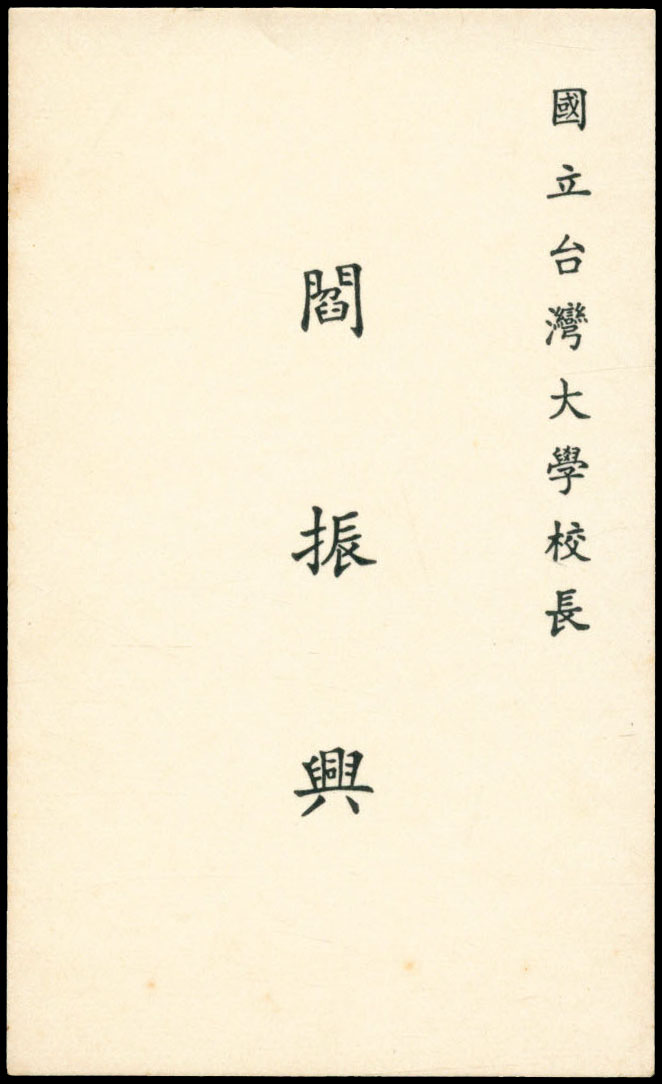 國立台灣大學校長
閻振興